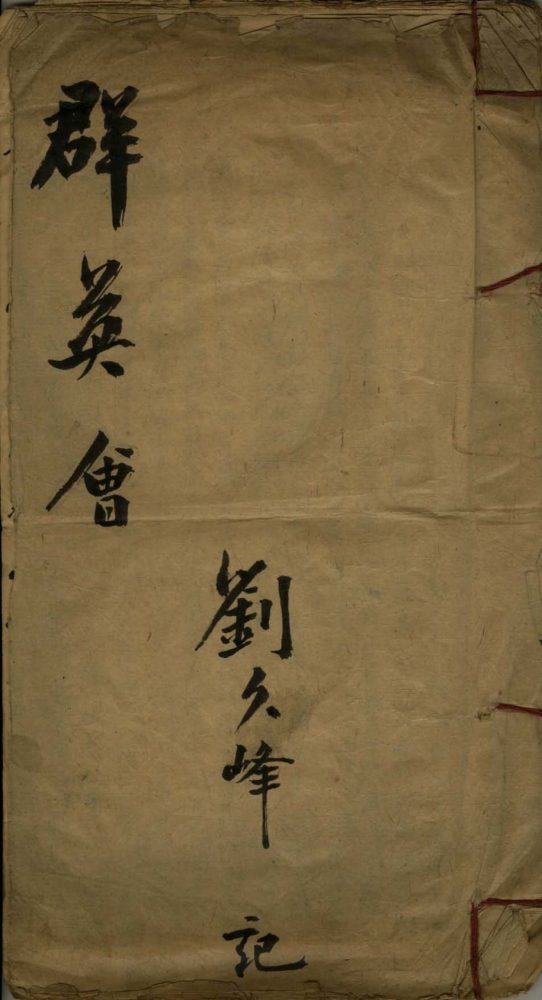 群英會
劉久峰記